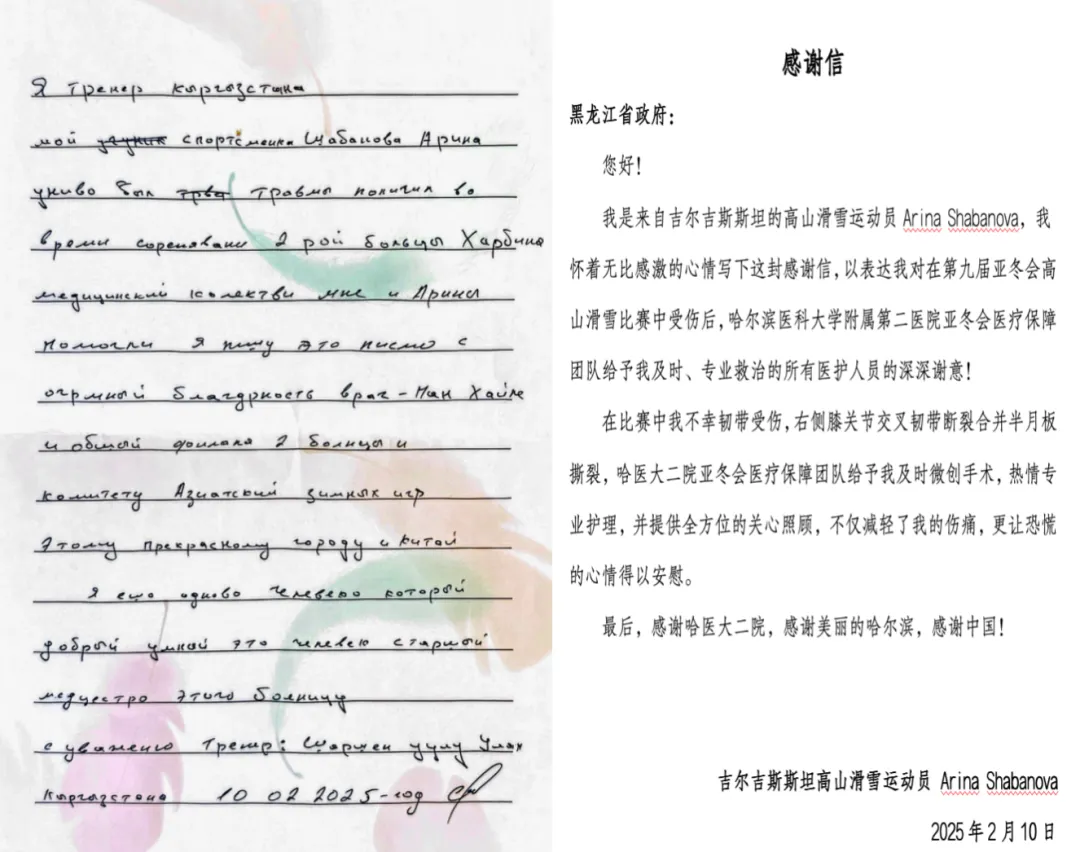 Я тренер кыргызстана
мой ученик спортсменка Шабанова Арина
был травмы получил во
время соревнавани 2 рой больцы Харбина
медицинский колектви мне и Арины
помогли я пишу это писмо с
огрмный благдрность врач - Ман
и общый филала 2 болницы и
комитету Азиатский зимных игр
Этому прекрасному городу и китай
Я ещо одново челевеко который
добрый умной это челевек старшый
медцестро этого болницу
с уважению Тренер: уулу Улан
Кыргызстана 10 02 2025-год
感谢信
黑龙江省政府：
您好！
我是来自吉尔吉斯斯坦的高山滑雪运动员 Arina Shabanova，我
怀着无比感激的心情写下这封感谢信，以表达我对在第九届亚冬会高
山滑雪比赛中受伤后，哈尔滨医科大学附属第二医院亚冬会医疗保障
团队给予我及时、专业救治的所有医护人员的深深谢意！
在比赛中我不幸韧带受伤，右侧膝关节交叉韧带断裂合并半月板
撕裂，哈医大二院亚冬会医疗保障团队给予我及时微创手术，热情专
业护理，并提供全方位的关心照顾，不仅减轻了我的伤痛，更让恐慌
的心情得以安慰。
最后，感谢哈医大二院，感谢美丽的哈尔滨，感谢中国！
吉尔吉斯斯坦高山滑雪运动员 Arina Shabanova
2025 年 2 月 10 日